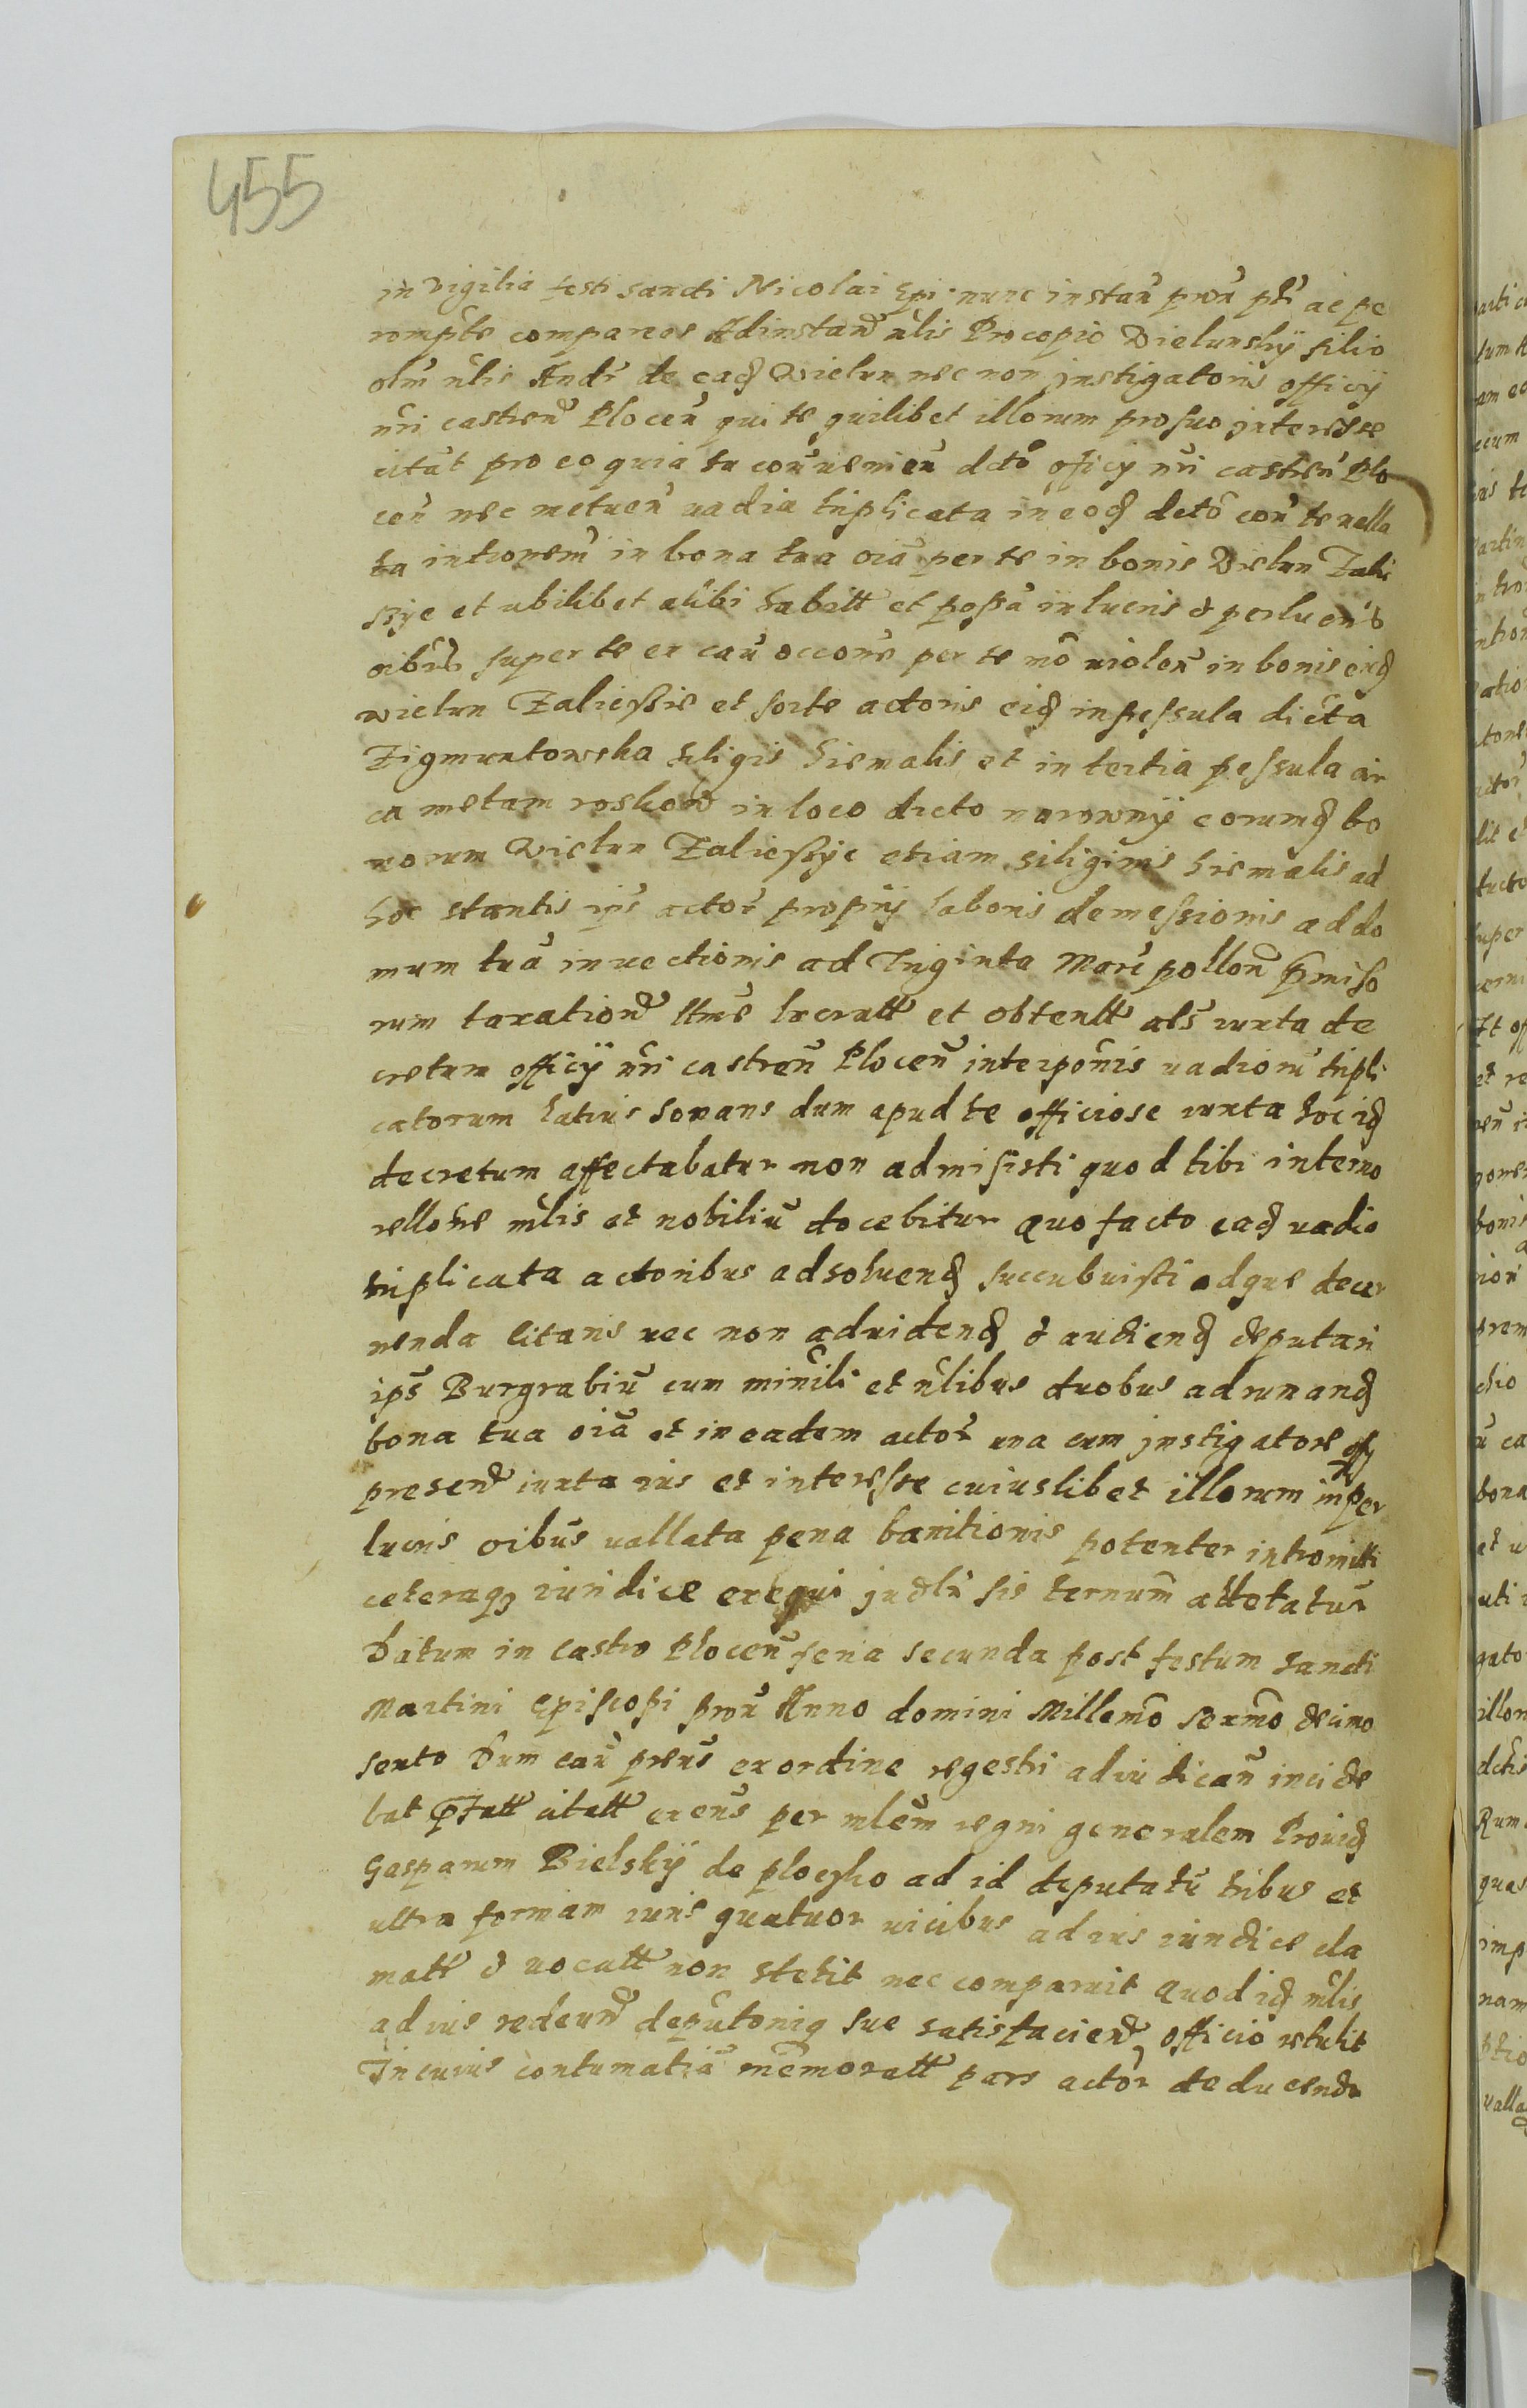 455
in vigilia festi sancti Nicolai Epi nunc instan proxi pti ac pe
rempte compareas Ad instan nlis Procopio Wielunskÿ filio
olim nlis Andr de eadq Wielun nec non jnstigatoris officÿ
nri castren Plocen qui te quilibet illorum pro suo jnteresse
citat pro eo quia tu contraveniens dcto oficy nri castren Plo
cen nec metuen vadia triplicata in eodq dcto con te valla
ta intronem in bona tua oia per te in bonis Wielun Zalie
ssÿe et ubilibet alibi habitt et possa in lucris et perlucris
oibus super te ex cau occone per te nro violen in bonis eiq
wielun Zaliessie et sorte actoris eiq in pessula dicta
Zigmuntowska siligis hiemalis et in tertia pessula cir
ca metam roskow in loco dicto narownÿ eorumq bo
norum Wielun Zaliessÿe etiam siliginis hiemalis ad
hoc stantis ips actor proprÿ laboris demessionis ad do
mum tua invectionis ad Triginta Marc pollon pmiso
rum taxatione ttme lucratt et obtentt als iuxta de
cretum officÿ nri castren Plocen interponis vadioru tripli
catorum latius sonans dum apud te officiose iuxta hoc idq
decretum affectabatur non admisisti quod tibi interno
rellone mlis et nobiliu docebitur Quo facto eadq vadia
triplicata actoribus ad soluendq succubuisti adque decer
nenda citaris nec non ad videndq et audiendq deputari
ips Burgrabiu cum minili et nlibus duobus ad runandq
bona tua oia et in eadem actor una cum jnstigatore offy
presend iuxta ius et interesse cuiuslibet illorum in per
lucris oibus vallata pena banitionis potenter intromitti
ceteraq iuridice exequi judlr sis ternum attetatur
Datum in castro Plocen feria secunda post festum sancti
Martini Episcopi prox Anno domini Millemo sexmo decimo
sexto Dum cau prens ex ordine regestri ad iudican incide
bat pfatt citatt exens per mlem regni generalem Providq
Gasparum Bielskÿ de ploczko ad id deputatu tribus et
ultra formam iuris quatuor vicibus ad ius iuridice cla
matt et vocatt non stetit nec comparuit Quod idq mlis
ad ius redeund deputoniq sue satisfaciend officio retulit
In cuius contumatia memoratt pars actor deducendo